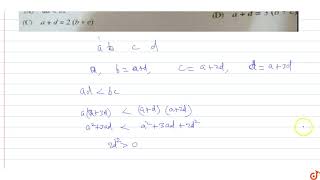 (C) a + d = 2 (b + c) (D)
a b c d
a, b = a+d, c = a+2d, d = a+3d
ad < bc
a(a+3d) < (a+d) (a+2d)
a²+3ad < a²+3ad + 2d²
2d² > 0